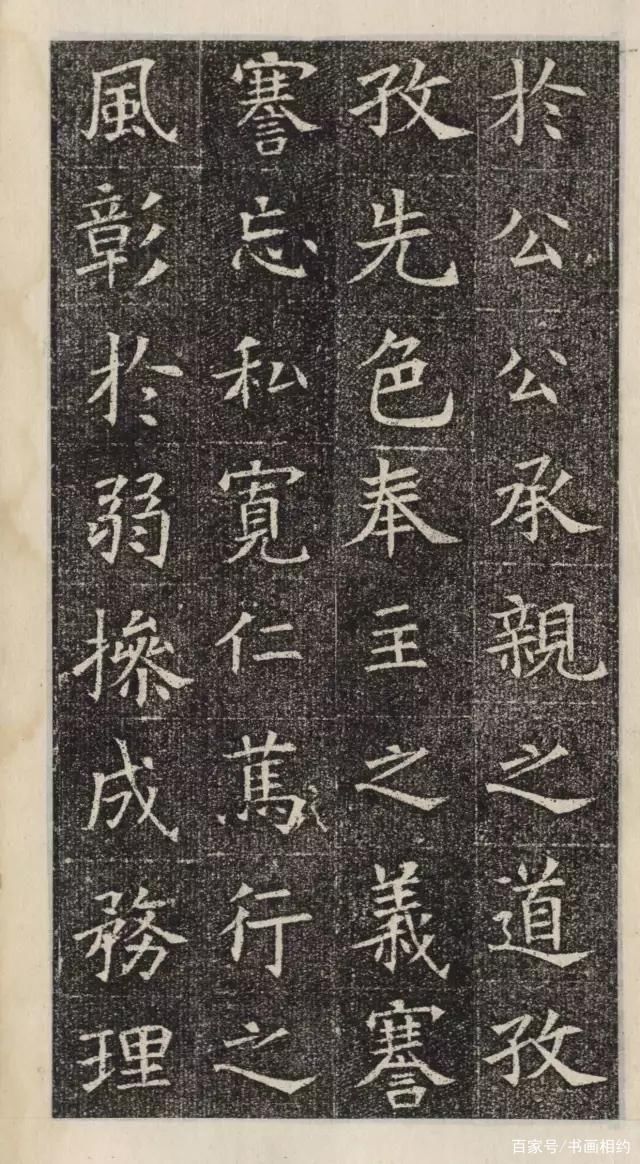 於公公承親之道孜
孜先色奉主之義謇
謇忘私寬仁篤行之
風彰於弱操成務理
百家号/书画相约